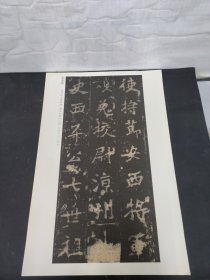 使持節安西將軍
護羌校尉涼州刺
史西平公七世祖